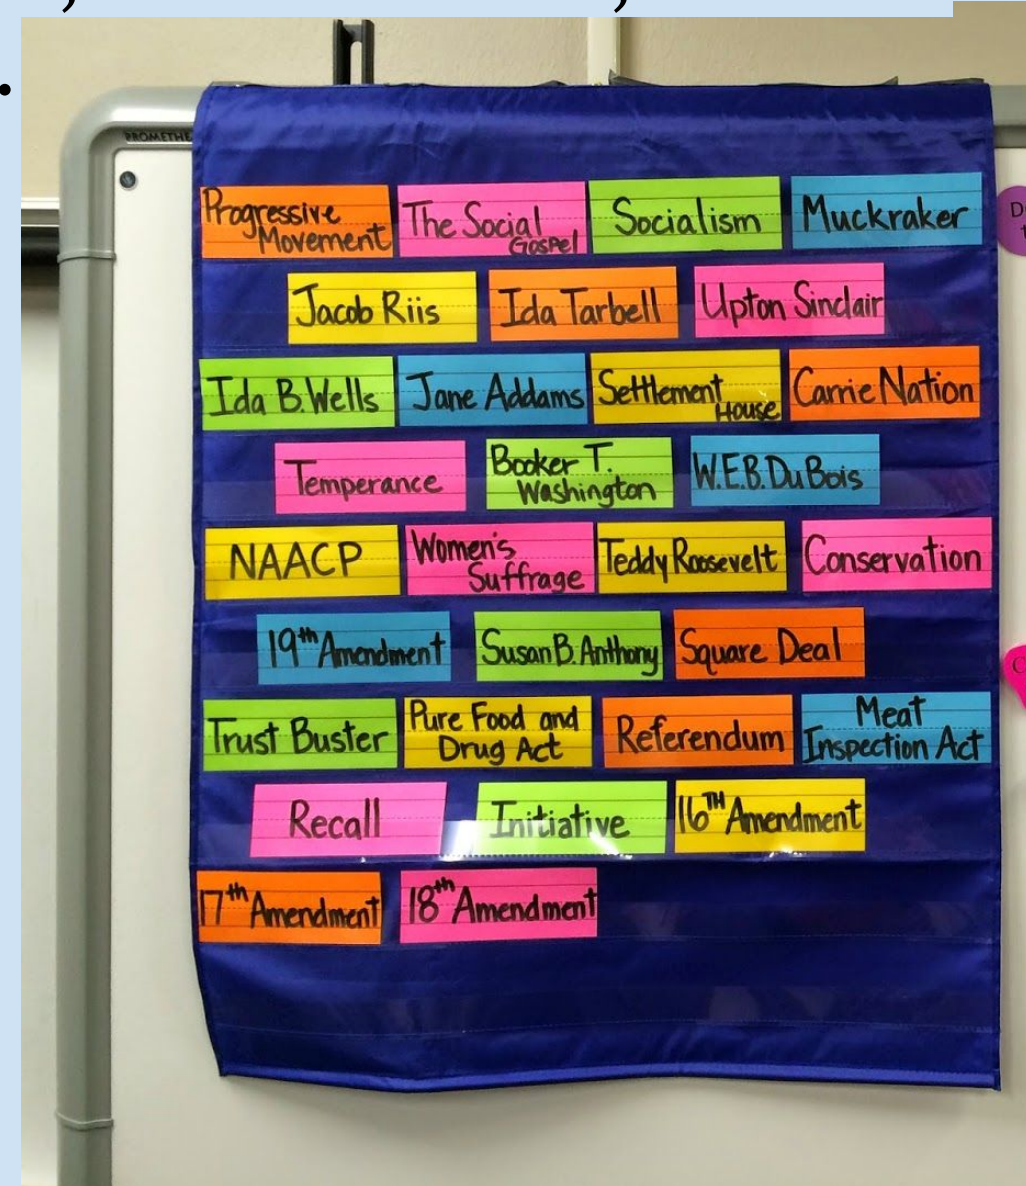 PROMETHE
Progressive
Movement
The Social
Gospel
Socialism
Muckraker
Jacob Riis
Ida Tarbell
Upton Sinclair
Ida B. Wells
Jane Addams
Settlement
House
Carrie Nation
Temperance
Booker T.
Washington
W.E.B. DuBois
NAACP
Women's
Suffrage
Teddy Roosevelt
Conservation
19th Amendment
Susan B. Anthony
Square Deal
Trust Buster
Pure Food and
Drug Act
Referendum
Meat
Inspection Act
Recall
Initiative
16TH Amendment
17th Amendment
18th Amendment